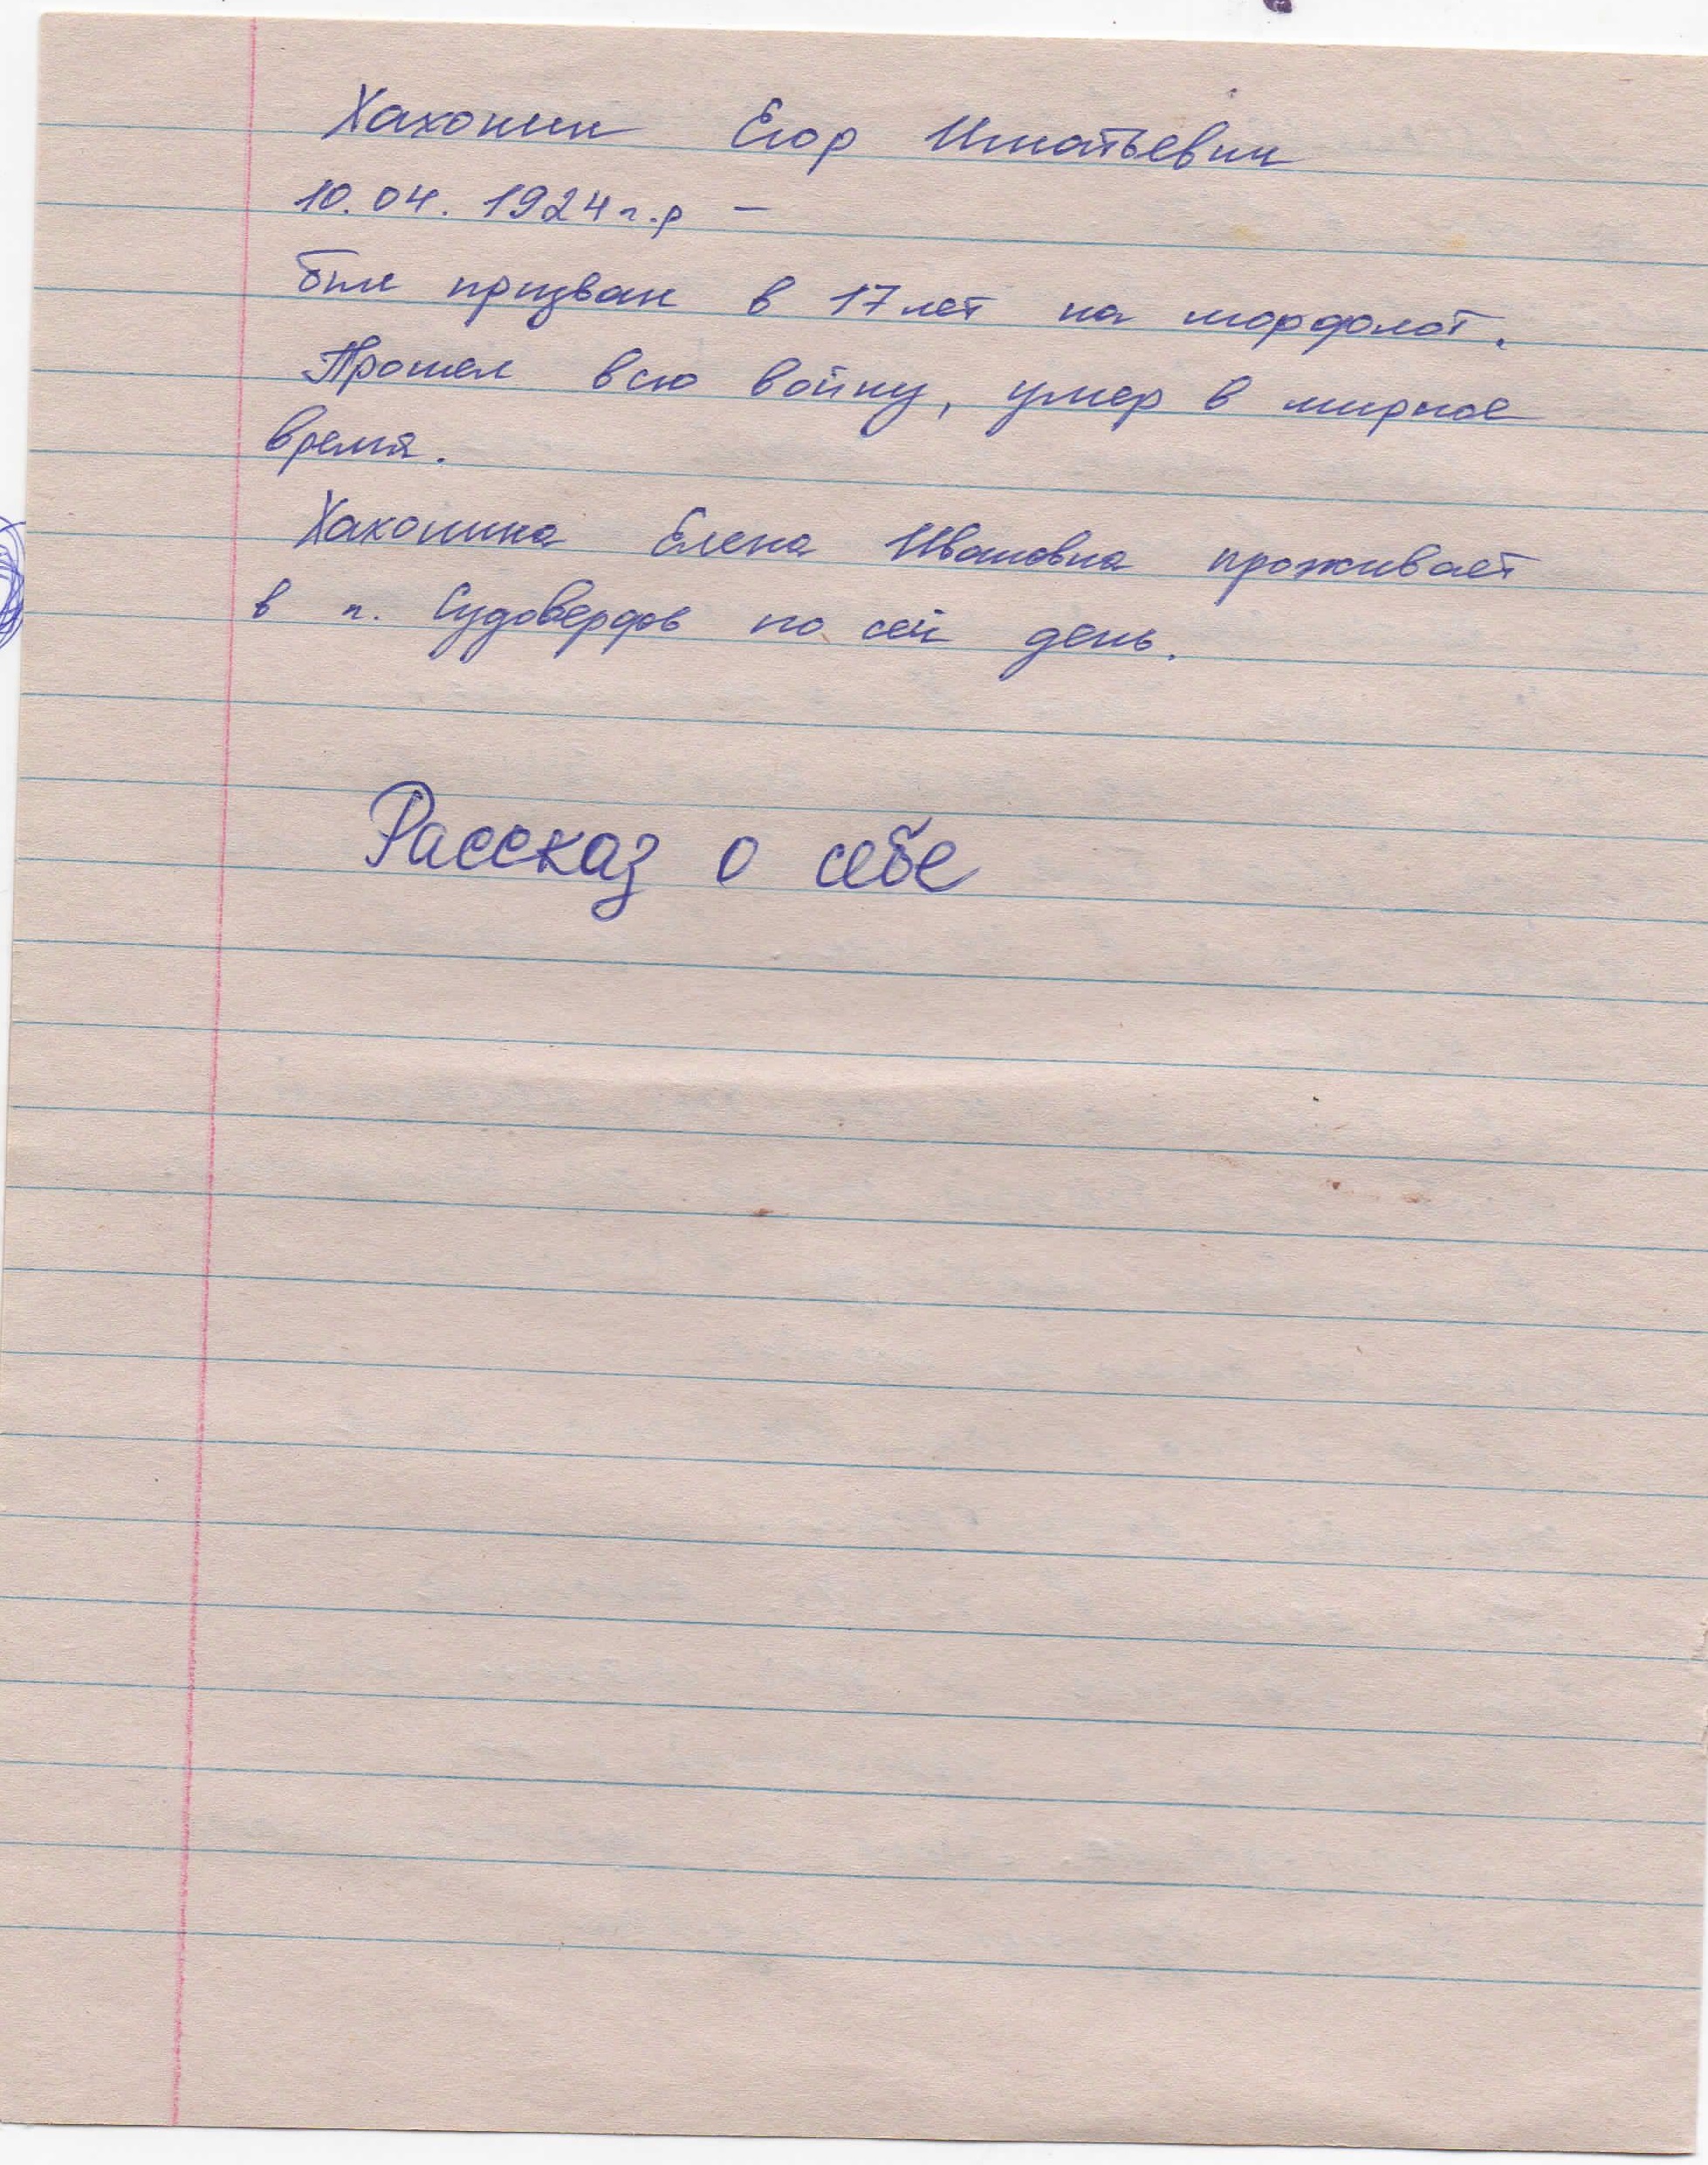 Хахонин Егор Игнатьевич
10.04.1924 г.р –
был призван в 17 лет на морфлот.
Прошел всю войну, умер в мирное
время.
Хахонина Елена Ивановна проживает
в п. Судоверфь по сей день.
Рассказ о себе